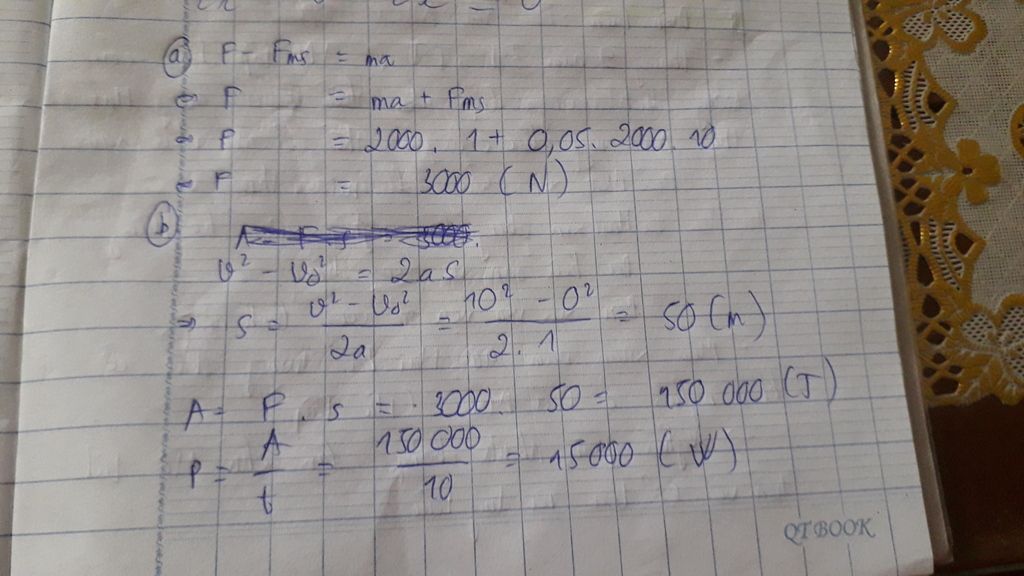 a) F - Fms = ma
⇔ F = ma + Fms
⇔ F = 2000. 1 + 0,05. 2000. 10
⇔ F = 3000 (N)
b)
v² - v₀² = 2aS
⇒ S = (v² - v₀²)/(2a) = (10² - 0²)/(2. 1) = 50 (m)
A = F. s = 3000. 50 = 150 000 (J)
P = A/t = 150 000/10 = 15000 (W)
QTBOOK